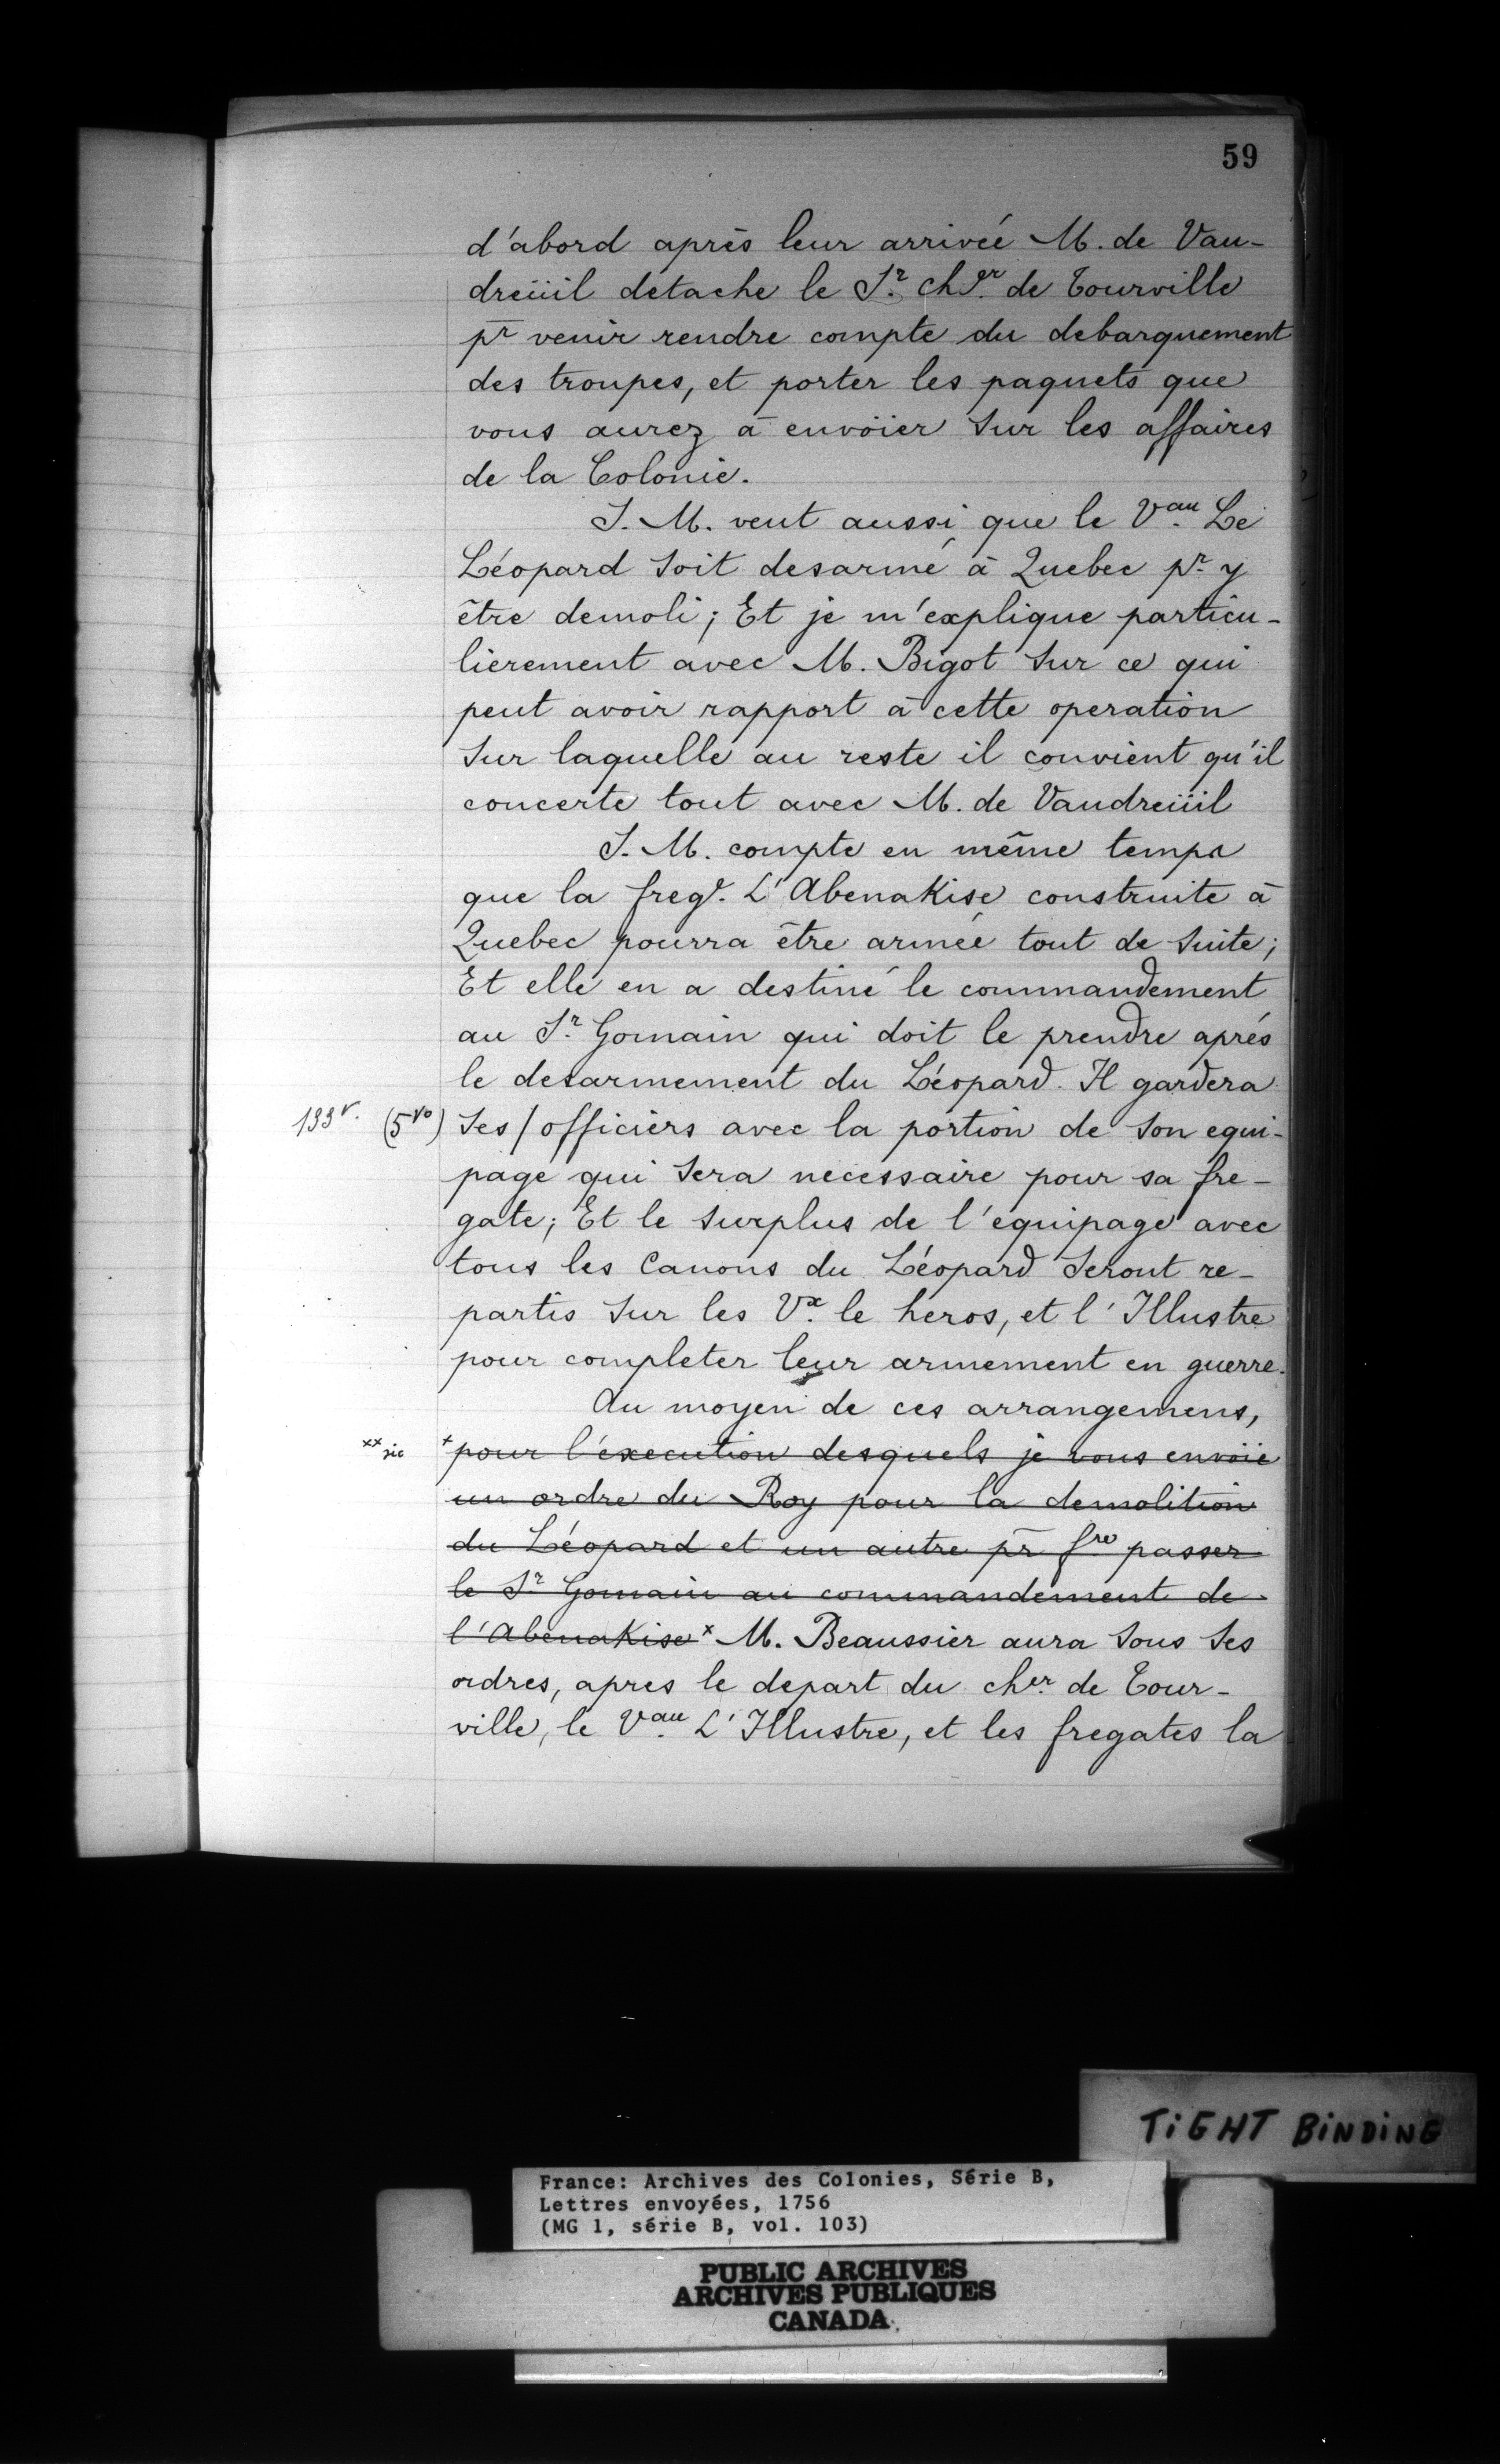 59
d'abord après leur arrivée M. de Vau-
dreüil detache le Sr. chev. de Tourville
pr venir rendre compte du debarquement
des troupes, et porter les paquets que
vous aurez à envoïer sur les affaires
de la Colonie.
S. M. veut aussi que le Vau. Le
Léopard soit desarmé à Quebec pr. y
être demoli; Et je m'explique particu-
lierement avec M. Bigot sur ce qui
peut avoir rapport à cette operation
sur laquelle au reste il convient qu'il
concerte tout avec M. de Vaudreüil
S. M. compte en même temps
que la frege. L'Abenakise construite à
Quebec pourra être armée tout de suite;
Et elle en a destiné le commandement
au Sr. Gomain qui doit le prendre aprés
le desarmement du Léopard. Il gardera
133v. (5vo) ses / officiers avec la portion de son equi-
page qui sera necessaire pour sa fre-
gate; Et le surplus de l'equipage avec
tous les Canons du Léopard seront re-
partis sur les Vx. le heros, et l'Illustre
pour completer leur armement en guerre.
Au moyen de ces arrangemens,
xx sic x pour l'execution desquels je vous envoïe
un ordre du Roy pour la demolition
du Léopard et un autre pr fre passer
le Sr Gomain au commandement de
l'Abenakise x M. Beaussier aura sous ses
ordres, apres le depart du cher. de Tour-
ville, le Vau. L'Illustre, et les fregates la
TiGHT BiNDiNG
France: Archives des Colonies, Série B,
Lettres envoyées, 1756
(MG 1, série B, vol. 103)
PUBLIC ARCHIVES
ARCHIVES PUBLIQUES
CANADA